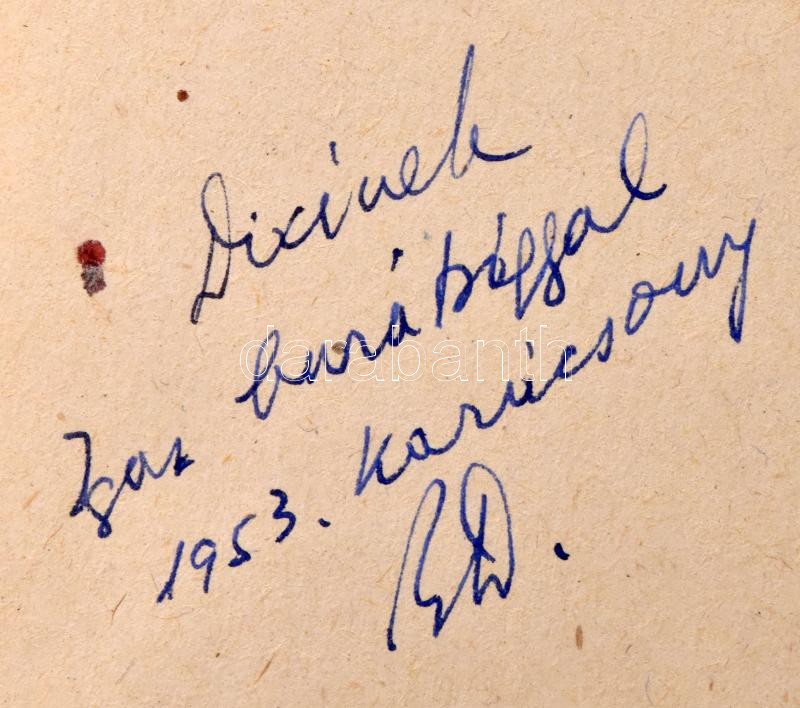 Dixinek
Igaz barátsággal
1953. Karácsony
darabanth